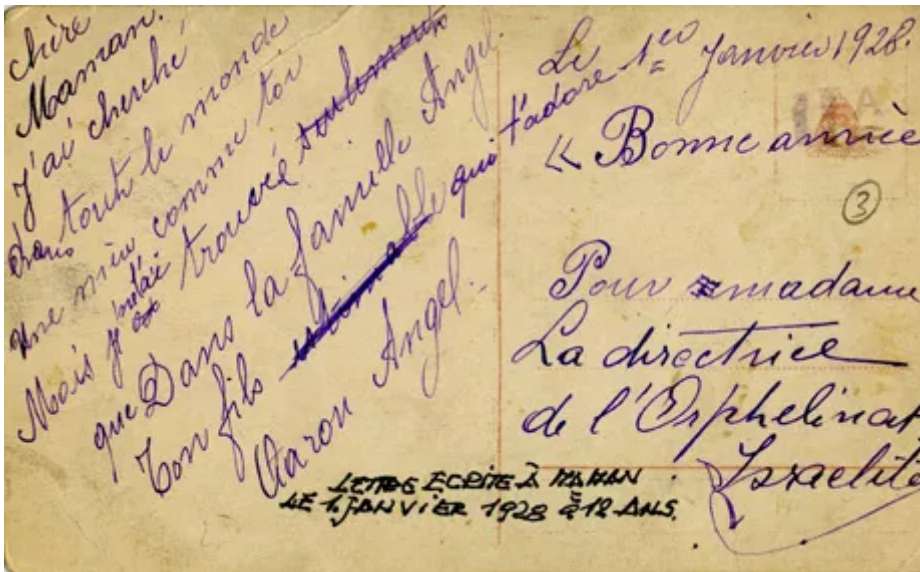 chère
Maman.
J'ai cherché
dans tout le monde
une mère comme toi
Mais je n'ai trouvé
que Dans la famille Angel
Ton fils qui t'adore
Aaron Angel.
Le 1er Janvier 1928.
« Bonne année
3
Pour madame
La directrice
de l'Orphelinat
Israélite
LETTRE ECRITE À MAMAN
LE 1 JANVIER 1928 à 12 ANS.